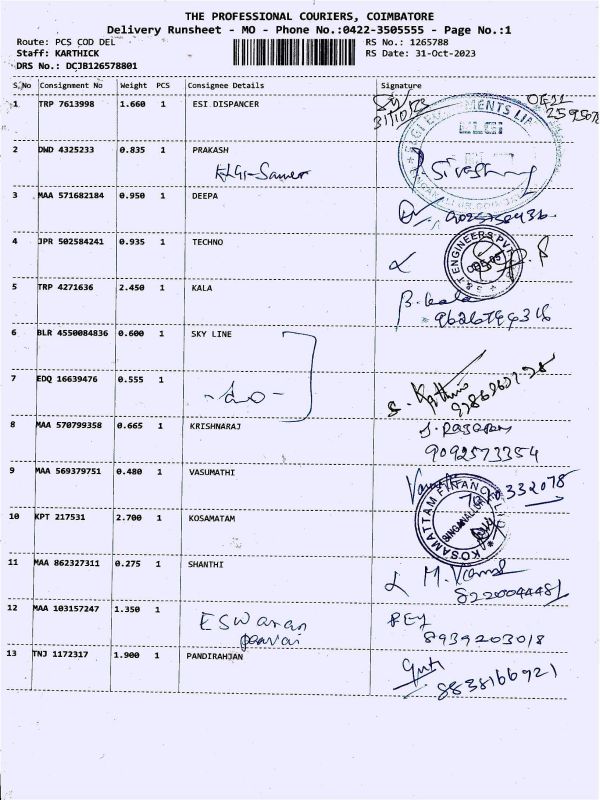 THE PROFESSIONAL COURIERS, COIMBATORE
Delivery Runsheet - MO - Phone No.:0422-3505555 - Page No.:1
Route: PCS COD DEL RS No.: 1265788
Staff: KARTHICK RS Date: 31-Oct-2023
DRS No.: DCJB126578801
S.No Consignment No Weight PCS Consignee Details Signature
1 TRP 7613998 1.660 1 ESI DISPANCER
31/10/23
2 DWD 4325233 0.835 1 PRAKASH
3 MAA 571682184 0.950 1 DEEPA
4 JPR 502584241 0.935 1 TECHNO
5 TRP 4271636 2.450 1 KALA B. kala
6 BLR 4550084836 0.600 1 SKY LINE
7 EDQ 16639476 0.555 1
-do-
8 MAA 570799358 0.665 1 KRISHNARAJ
9092573354
9 MAA 569379751 0.480 1 VASUMATHI
10 KPT 217531 2.700 1 KOSAMATAM
11 MAA 862327311 0.275 1 SHANTHI
8220044481
12 MAA 103157247 1.350 1
ESWaran
8939203018
13 TNJ 1172317 1.900 1 PANDIRAHJAN
8838166921